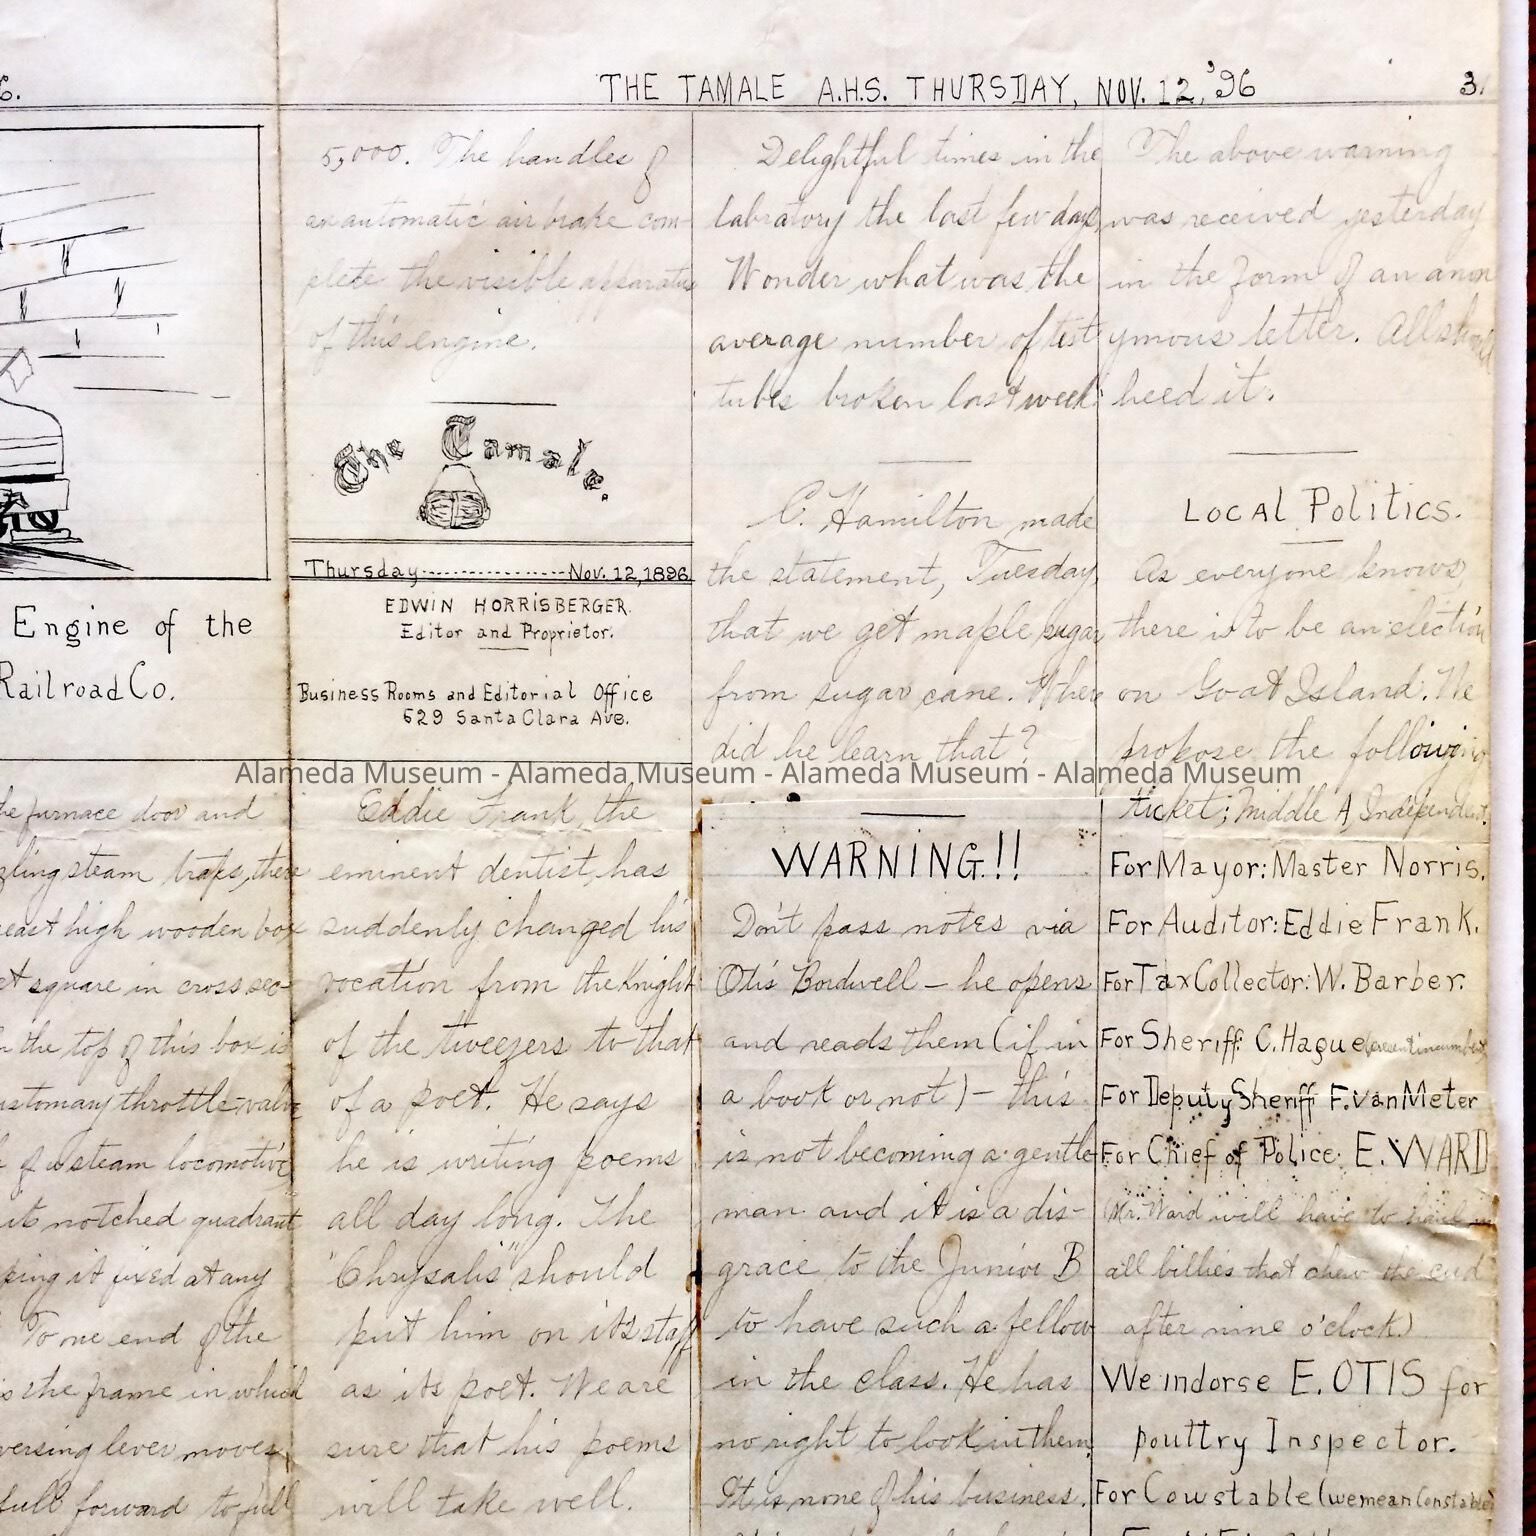 6.
THE TAMALE A.H.S. THURSDAY, NOV. 12, '96
3.
Engine of the
Railroad Co.
he furnace door and
zling steam traps, there
east high wooden box
et square in cross sec-
n the top of this box is
ustomary throttle-valve
of a steam locomotive
its notched quadrant
ping it fixed at any
To one end of the
is the frame in which
versing lever moves
full forward to full
5,000. The handles of
an automatic air brake com-
plete the visible apparatus
of this engine.
The Tamale.
Thursday---------------Nov. 12, 1896
EDWIN HORRISBERGER.
Editor and Proprietor.
Business Rooms and Editorial Office
629 Santa Clara Ave.
Eddie Frank, the
eminent dentist, has
suddenly changed his
vocation from the Knight
of the tweezers to that
of a poet. He says
he is writing poems
all day long. The
"Chrysalis" should
put him on its staff
as its poet. We are
sure that his poems
will take well.
Delightful times in the
labratory the last few days,
Wonder what was the
average number of test
tubes broken last week
C. Hamilton made
the statement, Tuesday,
that we get maple sugar
from sugar cane. Where
did he learn that?
WARNING!!
Don't pass notes via
Otis Bordwell – he opens
and reads them (if in
a book or not) – this
is not becoming a gentle
man and it is a dis-
grace to the Junior B
to have such a fellow
in the class. He has
no right to look in them
It is none of his business.
The above warning
was received yesterday
in the form of an anon
ymous letter. All should
heed it.
Local Politics.
As everyone knows,
there is to be an election
on Goat Island. We
propose the following
ticket; Middle A, Independent.
For Mayor: Master Norris.
For Auditor: Eddie Frank.
For Tax Collector: W. Barber.
For Sheriff: C. Hague (present incumbent)
For Deputy Sheriff F. van Meter
For Chief of Police: E. WARD
(Mr. Ward will have to haul in
all billies that chew the cud
after nine o'clock)
We indorse E. OTIS for
Poultry Inspector.
For Cowstable (we mean Constable)
Alameda Museum - Alameda Museum - Alameda Museum - Alameda Museum